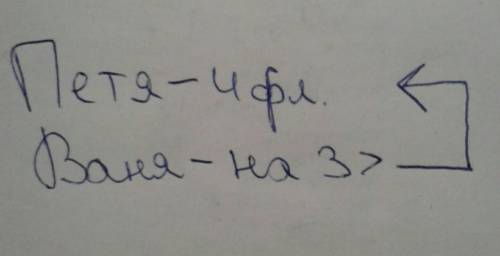 Петя - 4 фл.
Ваня - на 3 >